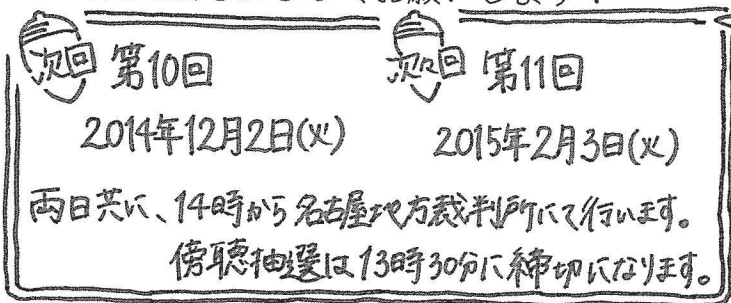 次回 第10回 次々回 第11回
2014年12月2日(火) 2015年2月3日(火)
両日共に、14時から名古屋地方裁判所にて行います。
傍聴抽選は13時30分に締切になります。